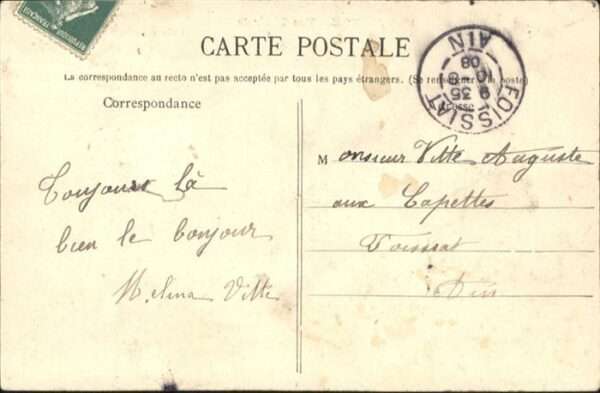 CARTE POSTALE
La correspondance au recto n'est pas acceptée par tous les pays étrangers. (Se renseigner à la poste)
Correspondance
Adresse
FOISSIAT
AIN
9 35
10
08
Toujours là
bien le bonjour
Vitte
Monsieur Vitte Auguste
aux Capettes
Foissiat
Ain